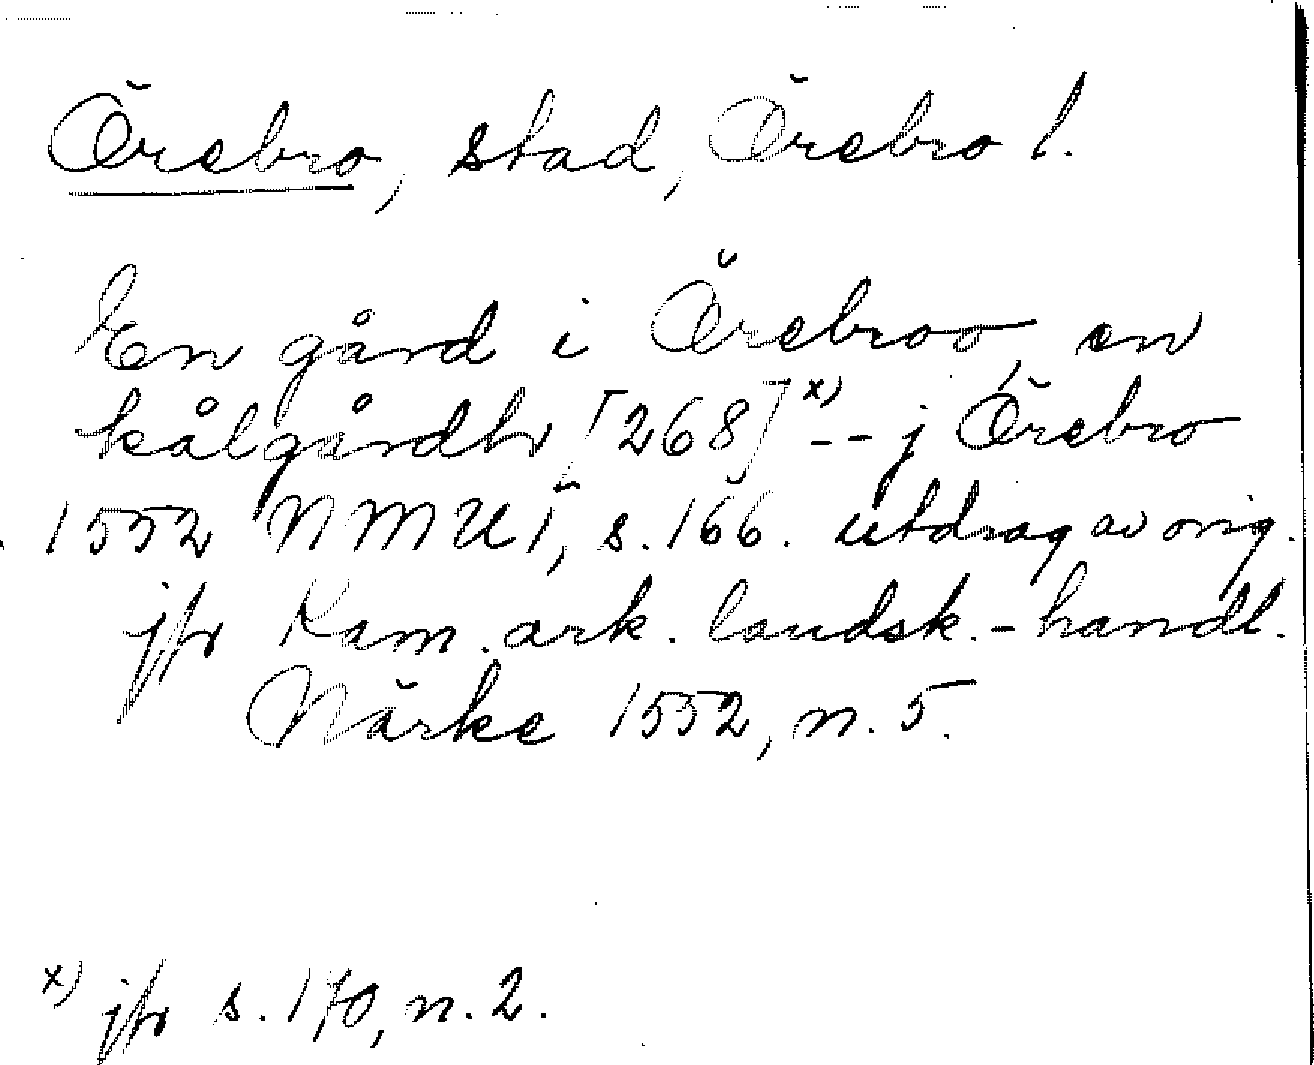 Örebro, stad, Örebro l.
En gård i Örebroo, en
kålgårdh [268] x) -- j Örebro
1552 NMU I, s. 166. utdrag av orig.
jfr Kam. ark. landsk.-handl.
Närke 1552, n. 5.
x) jfr s. 170, n. 2.